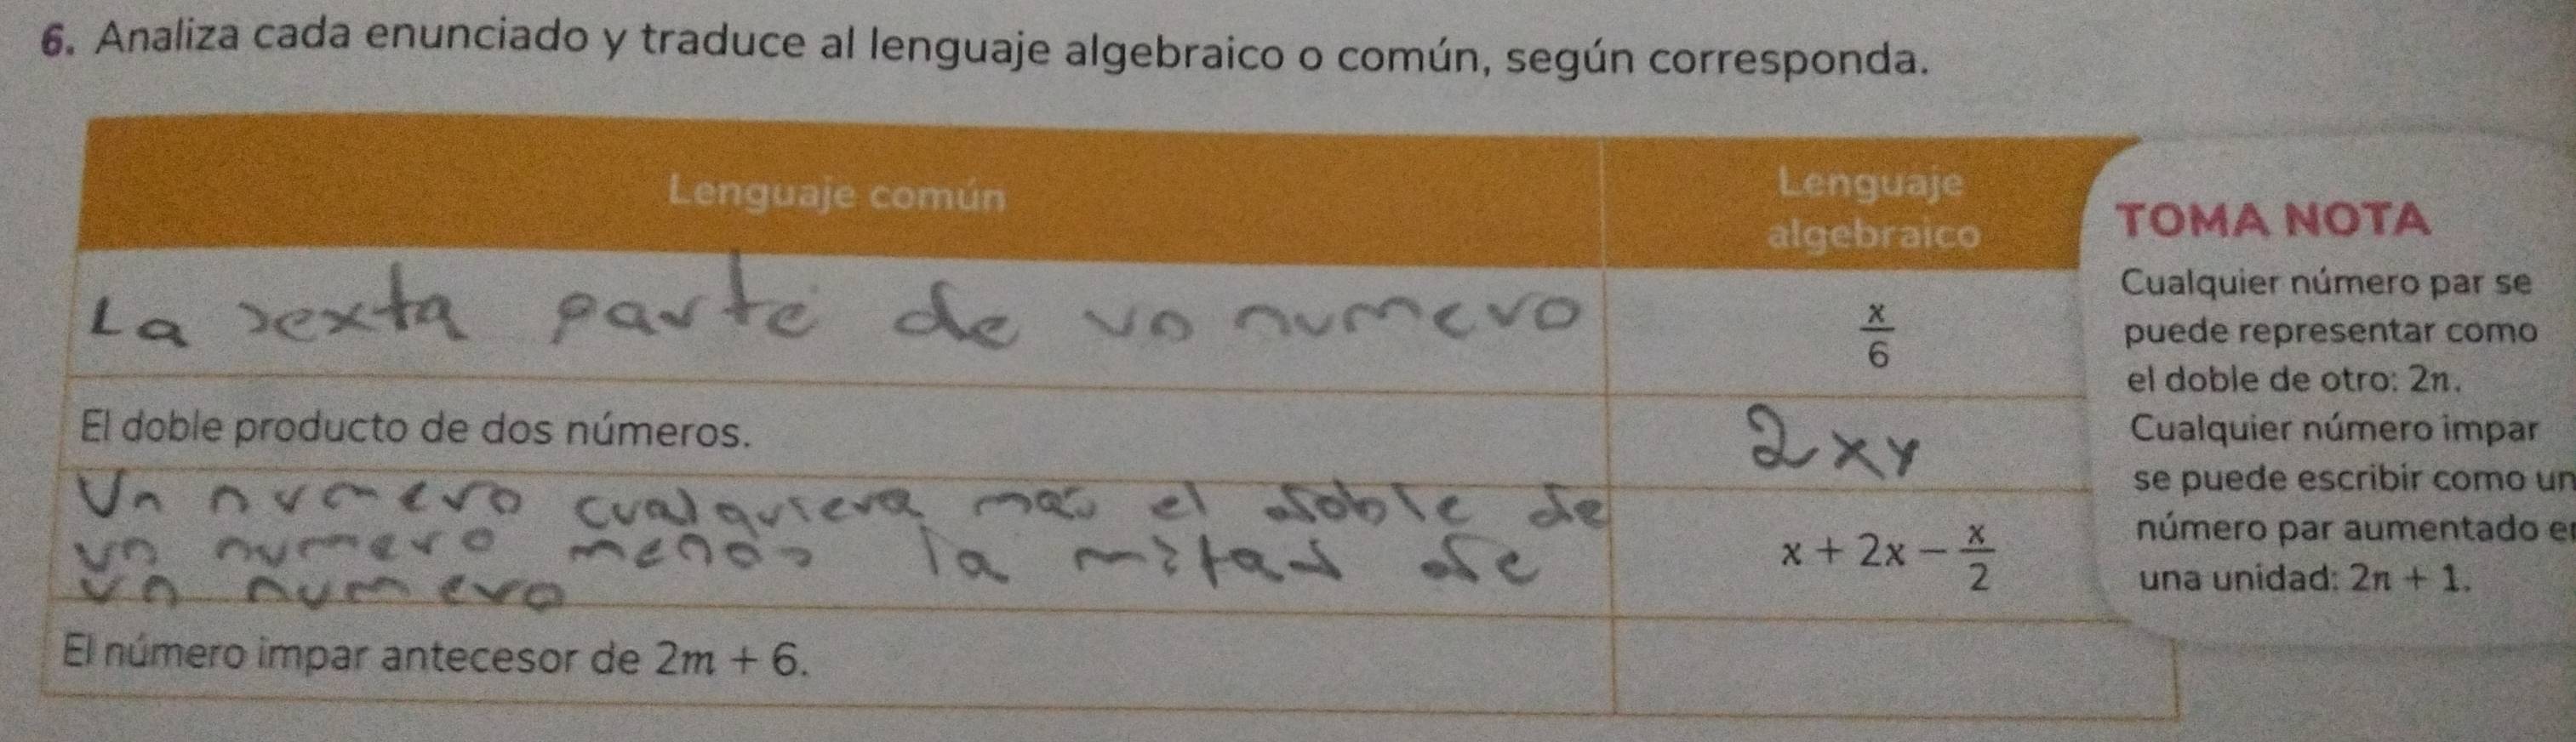 6. Analiza cada enunciado y traduce al lenguaje algebraico o común, según corresponda.
Lenguaje común
Lenguaje
algebraico
La sexta parte de un numero
x/6
El doble producto de dos números.
2xy
Un numero cualquiera mas el doble de
un numero menos la mitad de
un numero
x + 2x − x/2
El número impar antecesor de 2m + 6.
TOMA NOTA
Cualquier número par se
puede representar como
el doble de otro: 2n.
Cualquier número impar
se puede escribir como un
número par aumentado e
una unidad: 2n + 1.